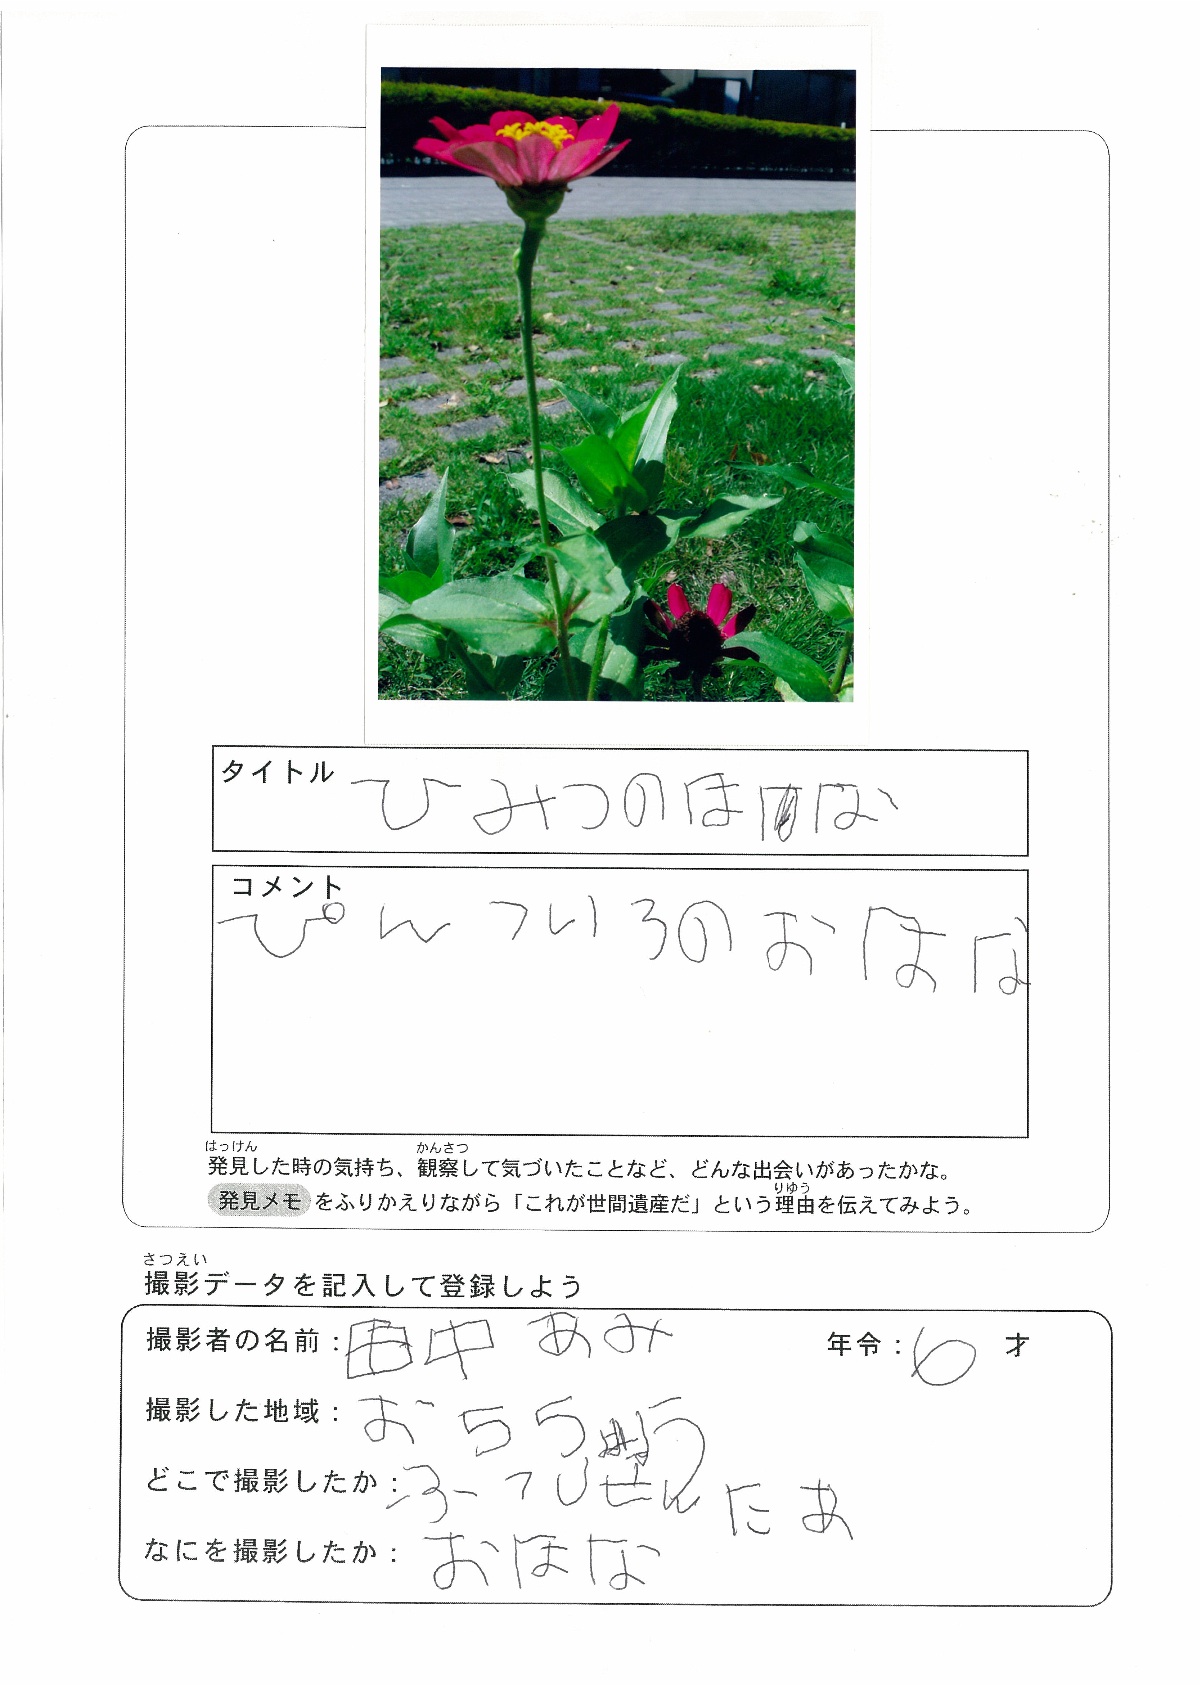 タイトル ひみつのほな
コメント
ぴんついろのおはな
はっけん かんさつ
発見した時の気持ち、観察して気づいたことなど、どんな出会いがあったかな。
りゆう
発見メモ をふりかえりながら「これが世間遺産だ」という理由を伝えてみよう。
さつえい
撮影データを記入して登録しよう
撮影者の名前： 田中 あみ 年令： 6 才
撮影した地域：
どこで撮影したか： せんにあ
なにを撮影したか： おほな